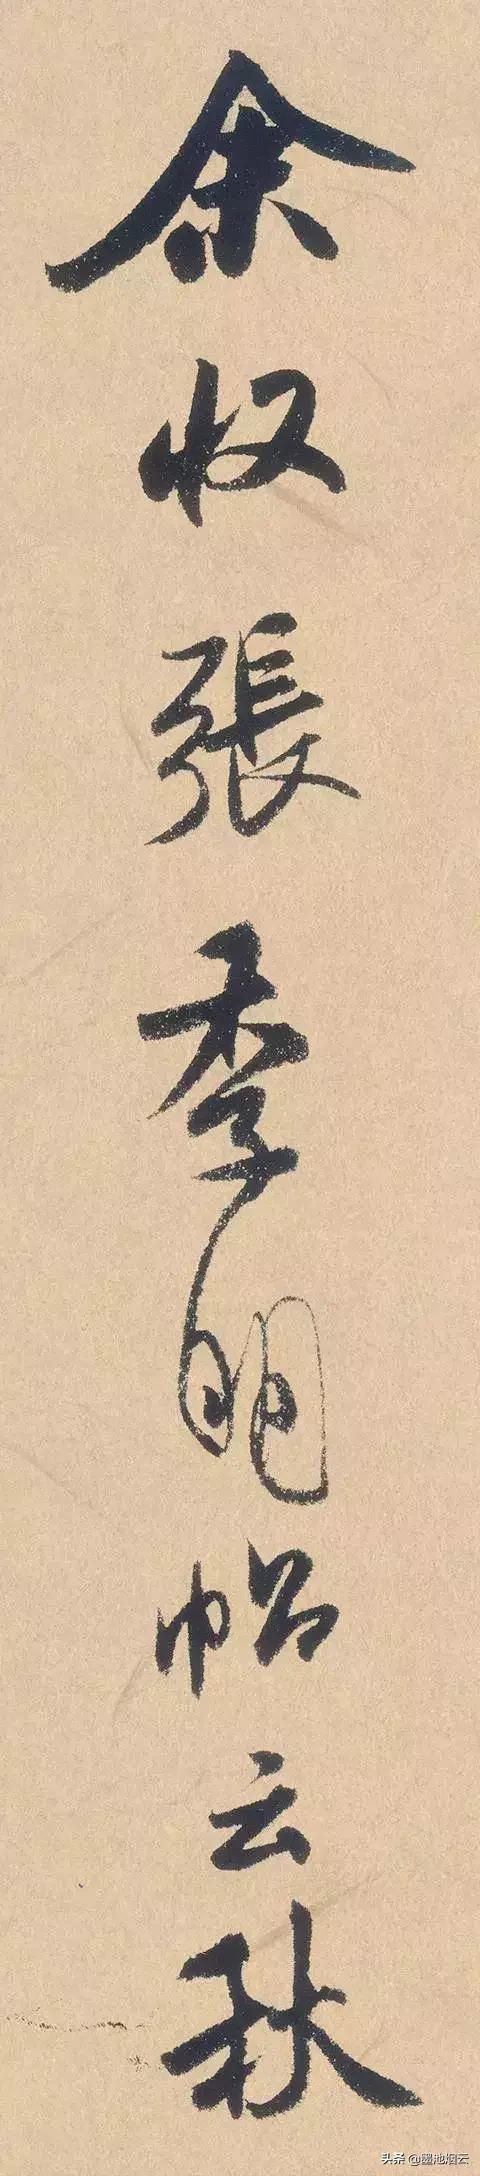 余收張季明帖云秋
头条 @墨池烟云